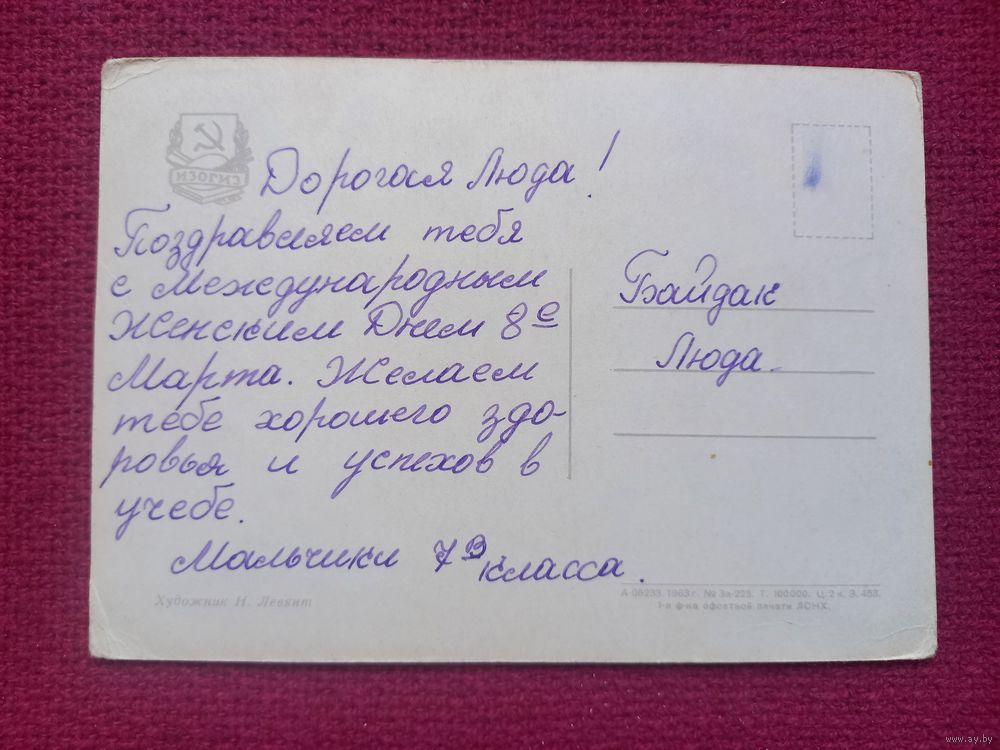 ИЗОГИЗ
Дорогая Люда!
Поздравляем тебя
с Международным
Женским Днем 8е
Марта. Желаем
тебе хорошего здо-
ровья и успехов в
учебе.
Мальчики 7В класса.
Байдак
Люда.
Художник Н. Левянт
А-06233. 1963 г. № 3а-225. Т. 100000. Ц. 2 к. З. 453.
1-я ф-ка офсетной печати ЛСНХ.
www.ay.by